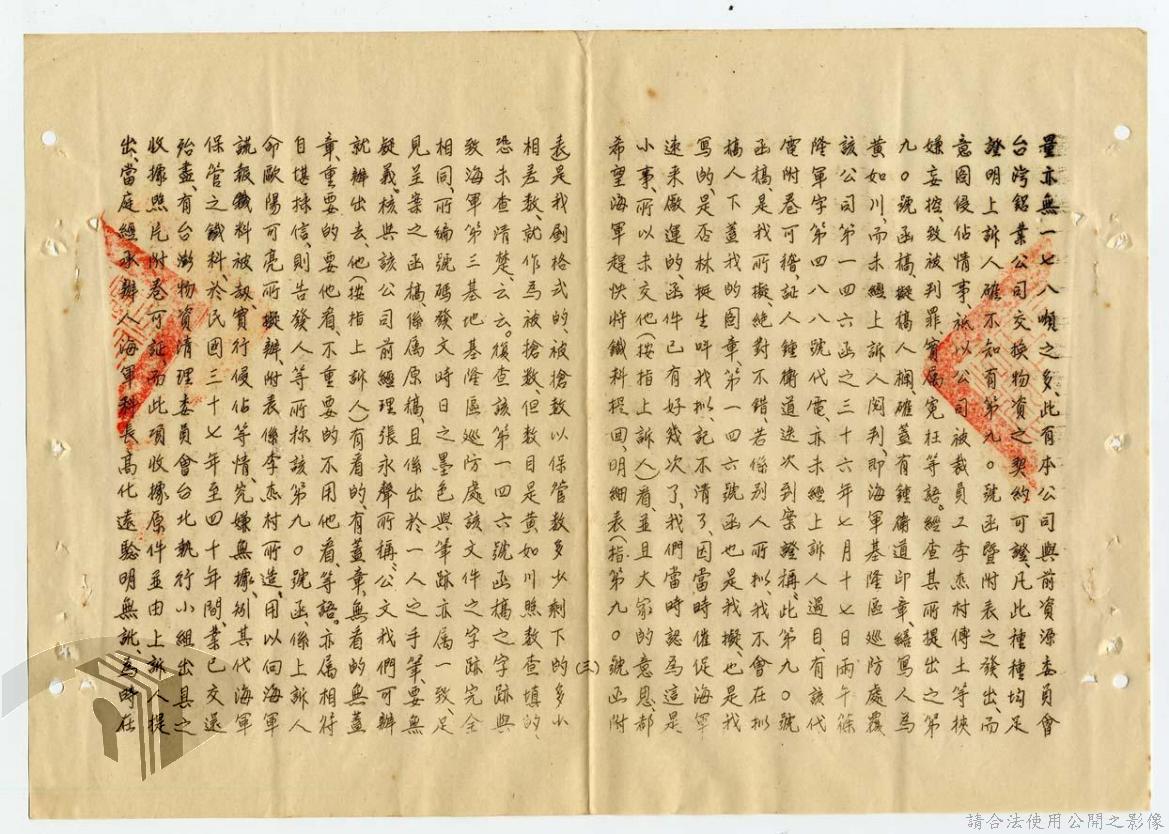 量亦無一七八噸之多、此有本公司與前資源委員會
台灣鋁業公司交換物資之契約可證、凡此種種均足
證明上訴人確不知有第九〇號函暨附表之發出、而
意圖侵佔情事、祇以公司被裁員工李杰村傅士等挾
嫌妄控、致被判罪實屬冤枉等語。經查其所提出之第
九〇號函稿、擬稿人欄、確蓋有鍾衛道印章、繕寫人為
黃如川、而未經上訴人閱判、即海軍基隆區巡防處覆
該公司第一四六函之三十六年七月十七日雨午條
隆軍字第四八八號代電、亦未經上訴人過目、有該代
電附卷可稽、証人鍾衛道迭次到案證稱、此第九〇號
函稿、是我所擬絕對不錯、若係別人所擬、我不會在擬
稿人下蓋我的圖章、第一四六號函也是我擬、也是我
寫的、是否林挺生叫我擬、記不清了、因當時催促海軍
速來儎運的、函件已有好幾次了、我們當時認為這是
小事、所以未交他(按指上訴人)看、並且大家的意思、都
希望海軍趕快將鐵料提回、明細表(指第九〇號函附
(三)
表)是我劃格式的、被搶數以保管數多少剩下的多少
相差數、就作為被搶數、但數目是黃如川照數查填的、
恐未查清楚、云云。復查該第一四六號函稿之字跡與
致海軍第三基地基隆區巡防處該文件之字跡完全
相同、所編號碼發文時日之墨色與筆跡亦屬一致、足
見呈案之函稿、係屬原稿、且係出於一人之手筆、要無
疑義。核與該公司前經理張永聲所稱、公文我們可辦
就辦出去、他(按指上訴人)有看的、有蓋章、無看的無蓋
章、重要的要他看、不重要的不用他看、等語。亦屬相符
自堪採信、則告發人等所稱該第九〇號函係上訴人
命歐陽可亮所擬辦、附表係李杰村所造、用以向海軍
謊報鐵料被刼實行侵佔等情、究嫌無據、刎其代海軍
保管之鐵料於民國三十七年至四十年間、業已交還
殆盡、有台澎物資清理委員會台北執行小組出具之
收據照片附卷可証、而此項收據原件並由上訴人提
出、當庭經承辦人海軍科長高化遠驗明無訛、為時在
請合法使用公開之影像